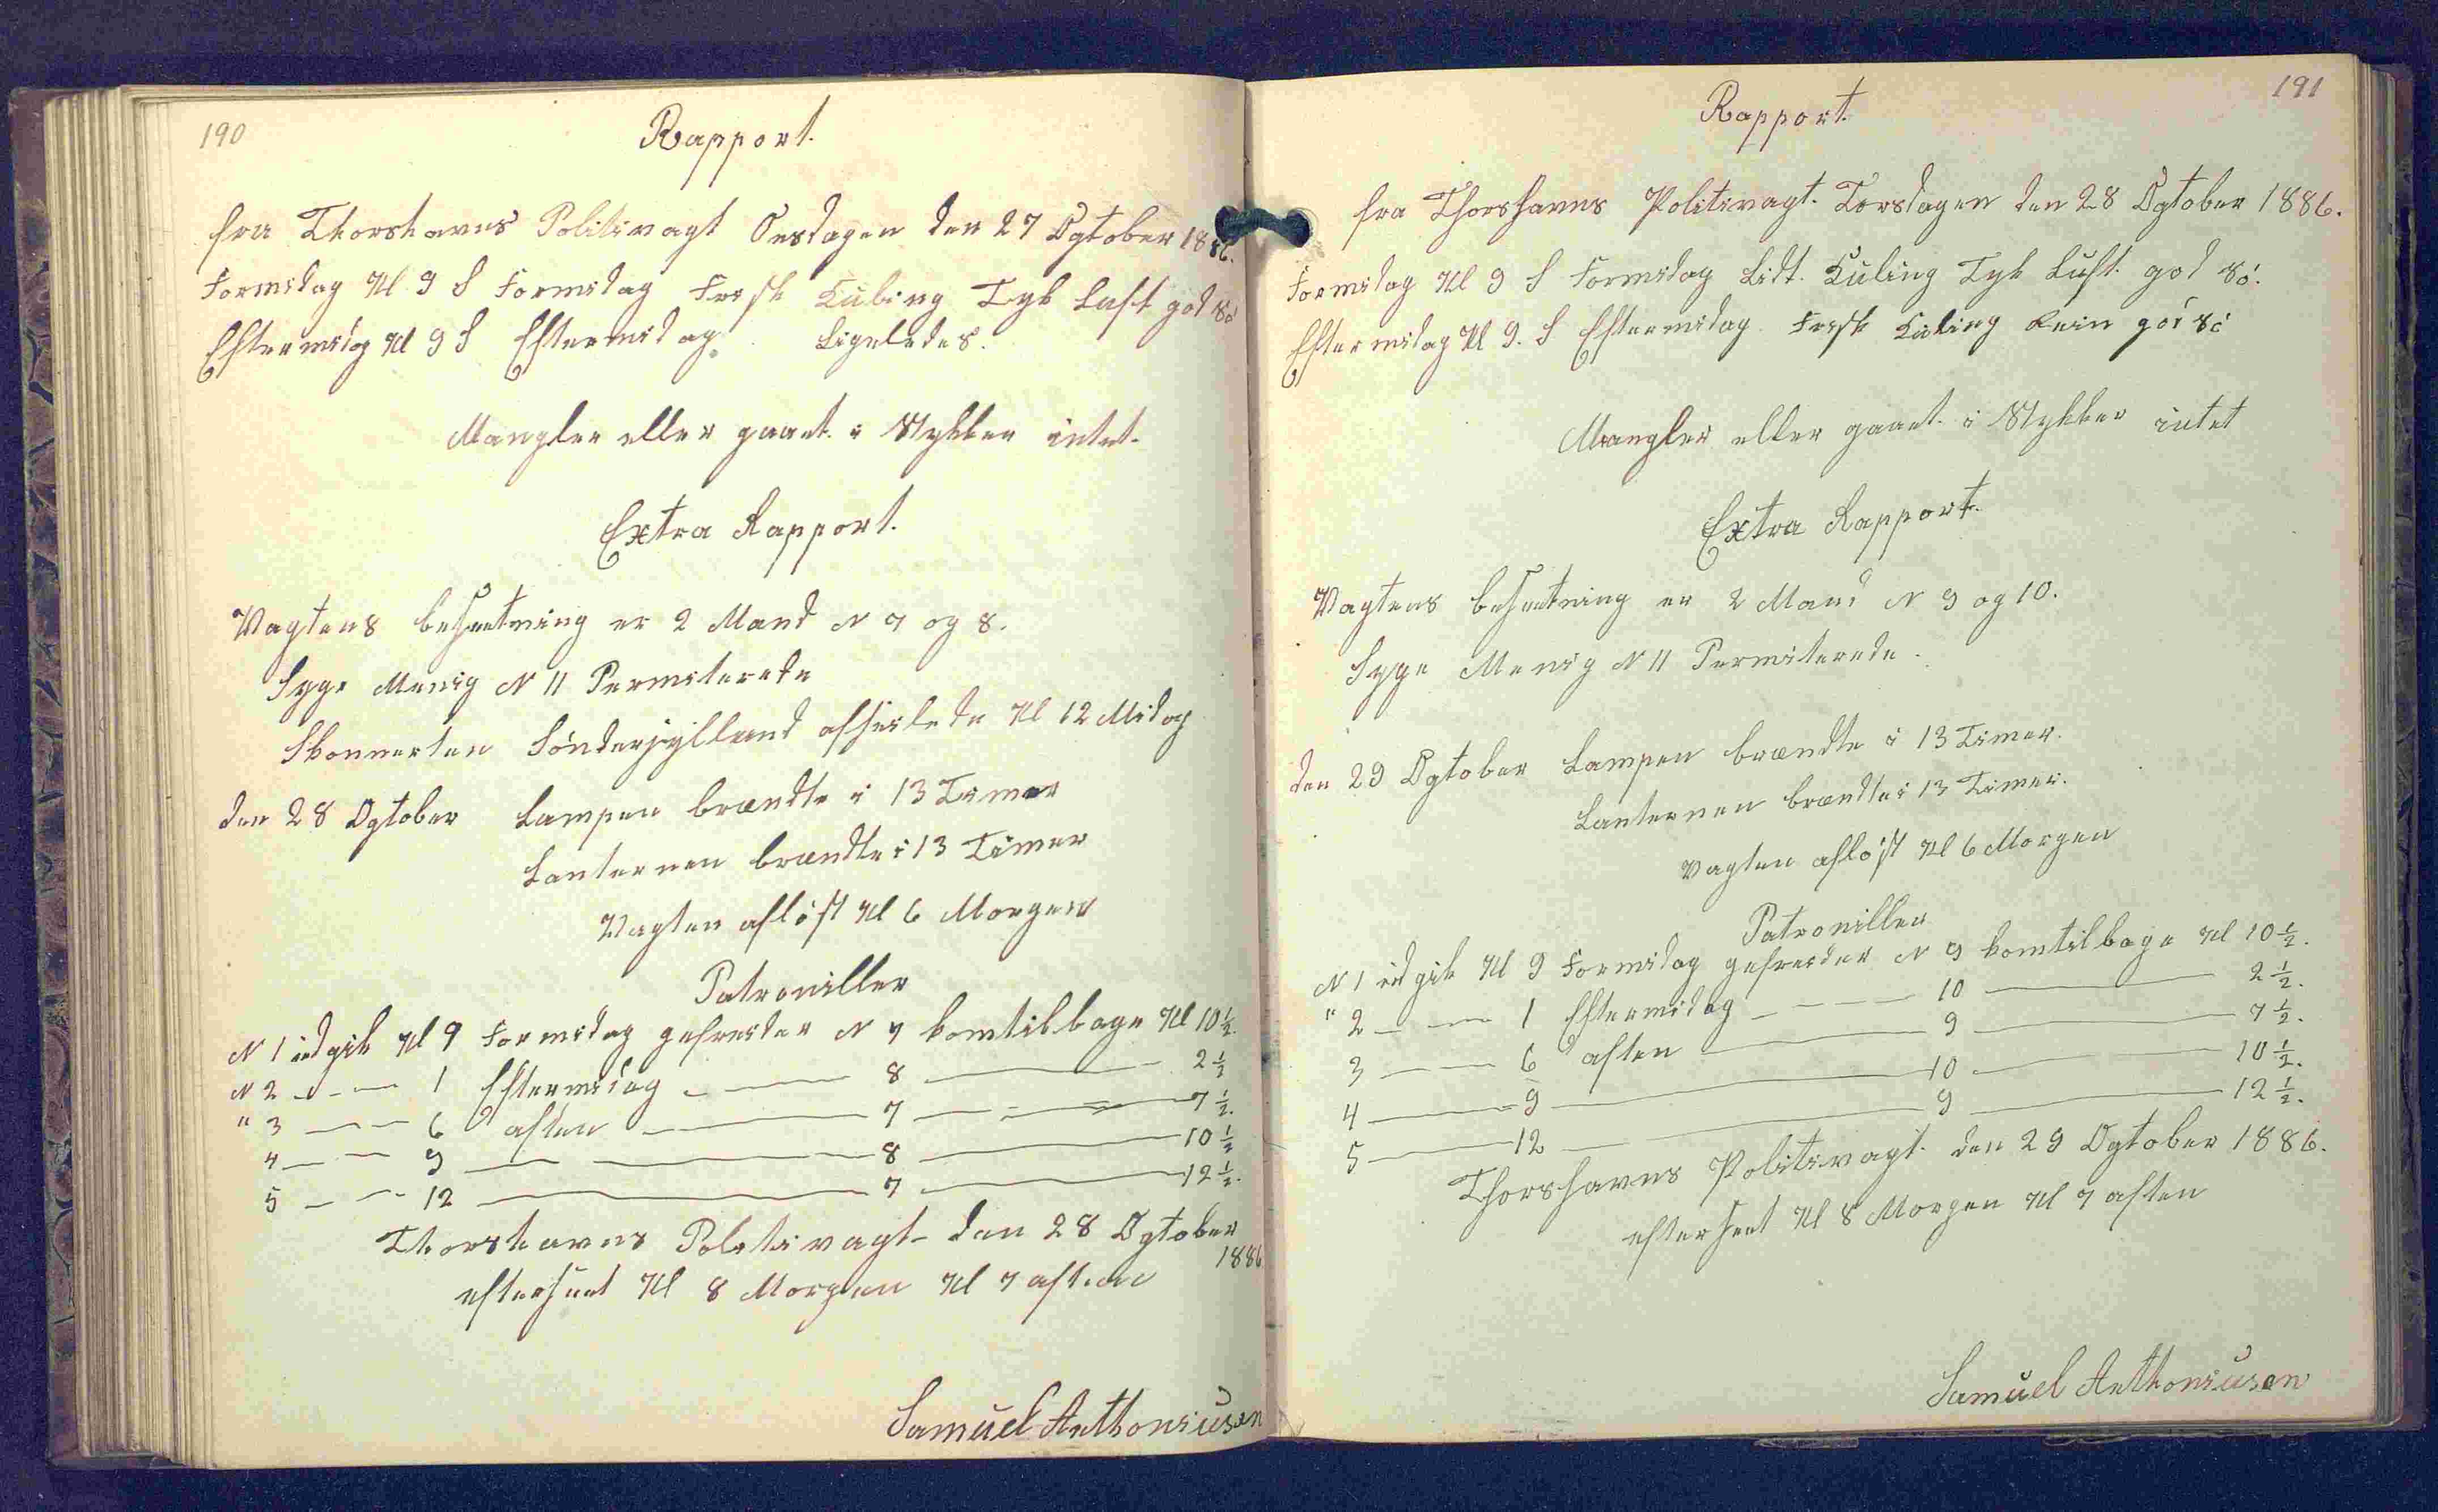 190
Rapport.
fra Thorshavns Politivagt Onsdagen den 27 Ogtober 1886.
Formidag Kl 9 S Formidag Frisk Kuling Tyk Luft god Sö
Eftermidag Kl 9 S Eftermidag Ligeledes.
Mangler eller gaaet i Stykker intet.
Extra Rapport.
Vagtens besætning er 2 Mand N 7 og 8.
Syge Menig N 11 Permiterede
Skonnerten Sönderjylland afseilede Kl 12 Midag
den 28 Ogtober Lampen brændte i 13 Timer
Lanternen brændte i 13 Timer
Vagten aflöst Kl 6 Morgen
Patroniller
N 1 udgik Kl 9 Formidag gefreider N 7 kom tilbage Kl 10 ½.
N 2 — — 1 Eftermidag — — 8 — 2 ½
" 3 — — 6 aften — 7 — — 7 ½.
4 — — 9 — — 8 — 10 ½
5 — — 12 — 7 — 12 ½.
Thorshavns Politivagt den 28 Ogtober
1886
efterseet Kl 8 Morgen Kl 7 aften
Samuel Anthoniusen
191
Rapport.
fra Thorshavns Politivagt. Torsdagen den 28 Ogtober 1886.
Formidag Kl 9 S Formidag Lidt Kuling Tyk Luft god Sö.
Eftermidag Kl 9. S Eftermidag Frisk Kuling Rein god Sö
Mangler eller gaaet i Stykker intet
Extra Rapport.
Vagtens besætning er 2 Mand N 9 og 10.
Syge Menig N 11 Permiterede.
den 29 Ogtober Lampen brændte i 13 Timer.
Lanternen brændte i 13 Timer.
Vagten aflöst Kl 6 Morgen
Patroniller
N 1 udgik Kl 9 Formidag gefreider N 9 kom tilbage Kl 10 ½.
" 2 — — 1 Eftermidag — — 10 — 2 ½.
3 — — 6 aften — 9 — 7 ½.
4 — 9 — 10 — 10 ½.
5 — 12 — 9 — 12 ½.
Thorshavns Politivagt. den 29 Ogtober 1886.
efterseet Kl 8 Morgen Kl 7 aften
Samuel Anthoniusen